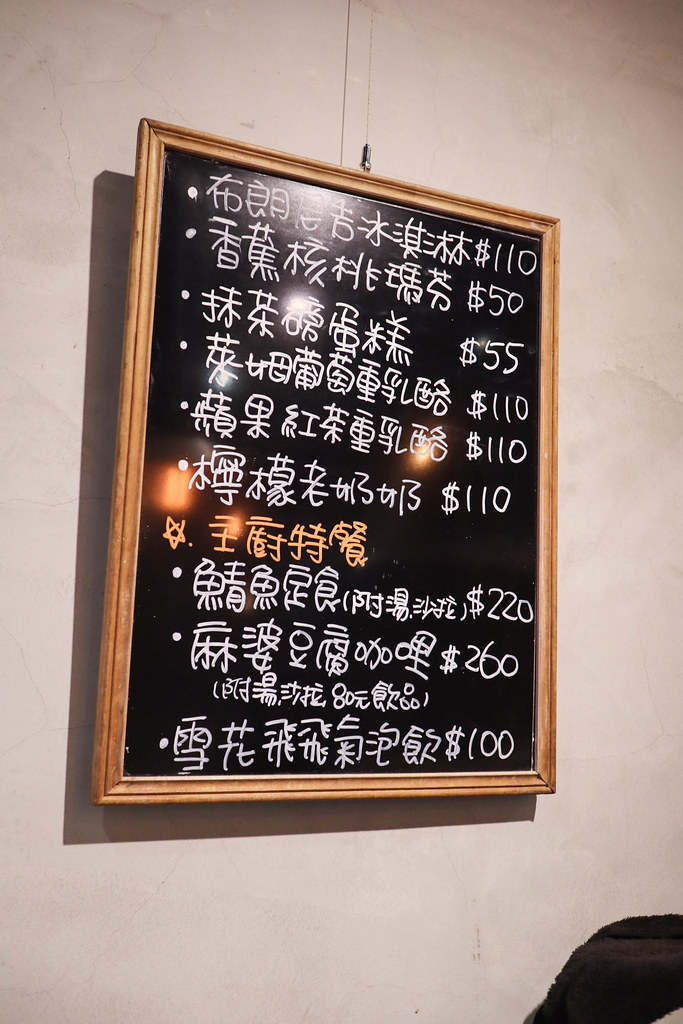 ·布朗尼吉冰淇淋$110
·香蕉核桃瑪芬 $50
·抹茶磅蛋糕 $55
·萊姆葡萄重乳酪 $110
·蘋果紅茶重乳酪 $110
·檸檬老奶奶 $110
☆.主廚特餐
·鯖魚定食(附湯.沙拉)$220
·麻婆豆腐咖哩$260
(附湯.沙拉.80元飲品)
·雪花飛飛氣泡飲$100